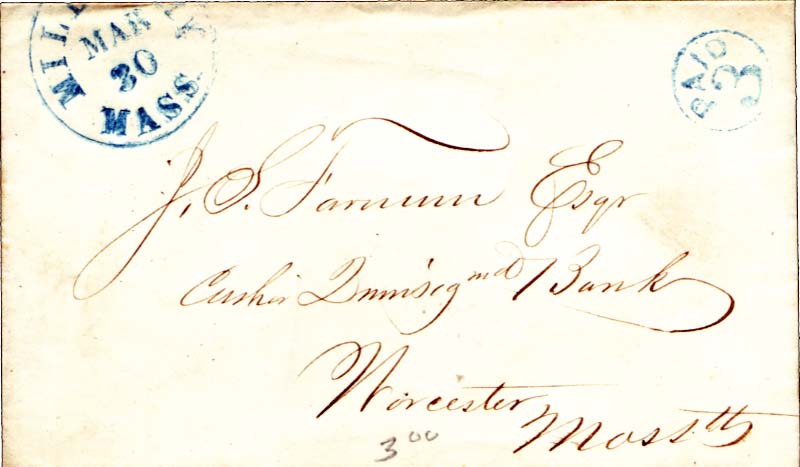 MAR
30
MASS.
PAID
3
J. S. Farnum Esqr
Cashr Quinsigmd Bank
Worcester
Masstts
3 00